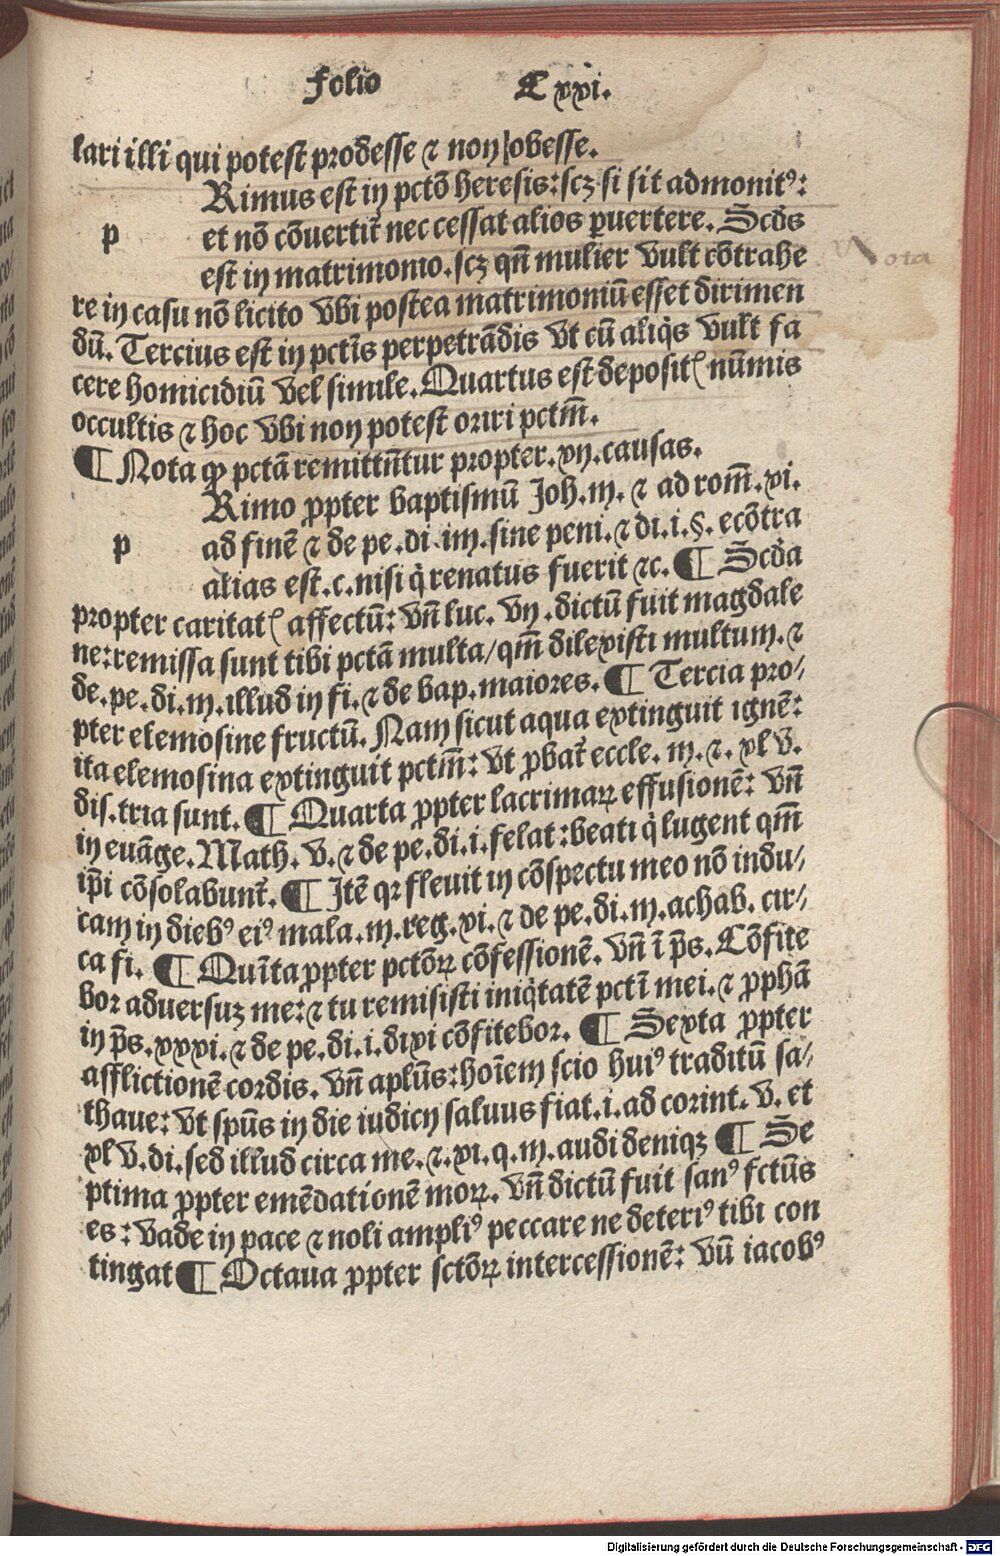 folio Cxxi.
lari illi qui potest prodesse ⁊ non obesse.
Rimus est in pctõ heresis: scꝫ si sit admonitꝰ:
p et nõ cõuertit̃ nec cessat alios ꝑuertere. Scds
est in matrimonio. scꝫ qñ mulier vult cõtrahe
Nota
re in casu nõ licito vbi postea matrimoniũ esset dirimen
dũ. Tercius est in pctĩs perpetrãdis vt cũ aliq̃s vult fa
cere homicidiũ vel simile. Quartus est deposit̃ nũmis
occultis ⁊ hoc vbi non potest oriri pctm̃.
¶ Nota ꝙ pctã remittũtur propter. vij. causas.
Rimo ꝓpter baptismũ Joh. iij. ⁊ ad rom̃. vi.
p ad finẽ ⁊ de pe. di. iiij. sine peni. ⁊ di. i. §. ecõtra
alias est. c. nisi q̃ renatus fuerit ⁊c. ¶ Scda
propter caritat̃ affectũ: vñ luc. vij. dictũ fuit magdale
ne: remissa sunt tibi pctã multa/ qm̃ dilexisti multum. ⁊
de. pe. di. iij. illud in fi. ⁊ de bap. maiores. ¶ Tercia pro⸗
pter elemosine fructũ. Nam sicut aqua extinguit ignẽ:
ita elemosina extinguit pctm̃: vt ꝓbat̃ eccle. iij. ⁊. xl v.
dis. tria sunt. ¶ Quarta ꝓpter lacrimaꝝ effusionẽ: vñ
in euãge. Math. v. ⁊ de pe. di. i. felat: beati q̃ lugent qm̃
ip̃i cõsolabunt̃. ¶ Jtẽ qꝛ fleuit in cõspectu meo nõ indu⸗
cam in diebꝰ eiꝰ mala. iij. reg. xi. ⁊ de pe. di. iij. achab. cir⸗
ca fi. ¶ Quĩta ꝓpter pctõꝝ cõfessionẽ. vñ ĩ p̃s. Cõfite
bor aduersuꝫ me: ⁊ tu remisisti iniq̃tatẽ pctĩ mei. ⁊ ꝓphã
in p̃s. xxxi. ⁊ de pe. di. i. dixi cõfitebor. ¶ Sexta ꝓpter
afflictionẽ cordis. vñ aplũs: hoĩem scio huiꝰ traditũ sa⸗
thane: vt spũs in die iudicij saluus fiat. i. ad corint. v. et
xl v. di. sed illud circa me. ⁊. xi. q. iij. audi deniqꝫ ¶ Se
ptima ꝓpter emẽdationẽ moꝝ. vñ dictũ fuit sanꝰ fctũs
es: vade in pace ⁊ noli ampliꝰ peccare ne deteriꝰ tibi con
tingat ¶ Octaua ꝓpter sctõꝝ intercessionẽ: vñ iacobꝰ
Digitalisierung gefördert durch die Deutsche Forschungsgemeinschaft - DFG